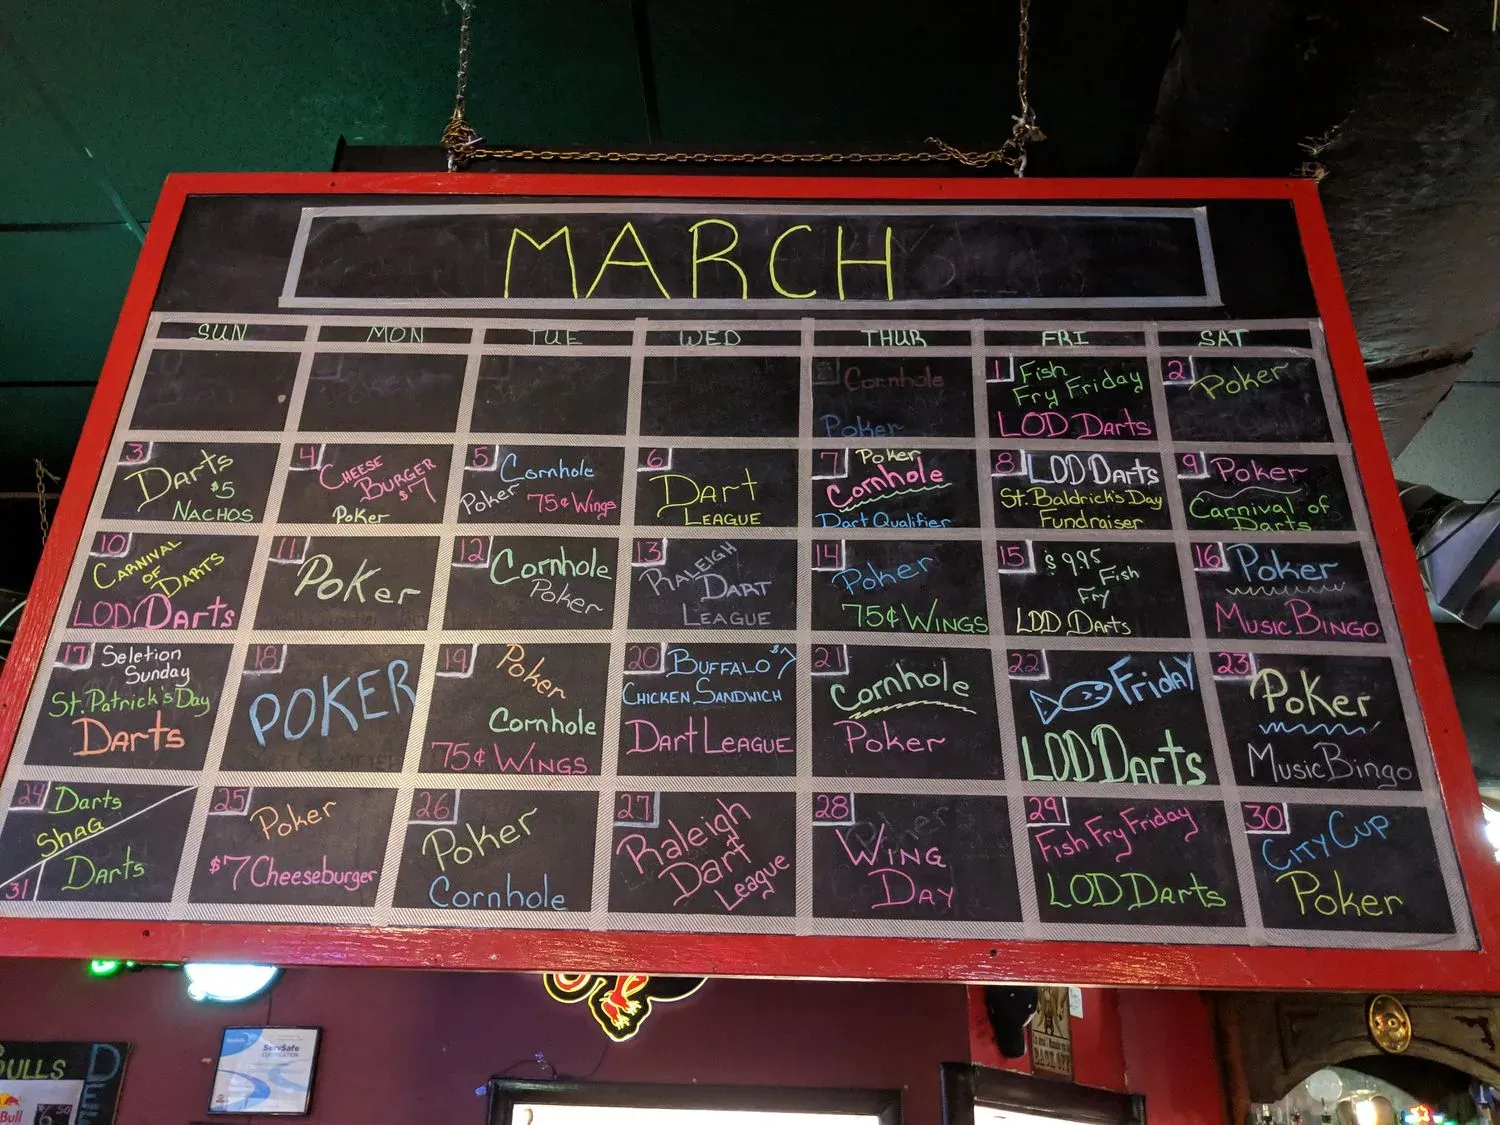 MARCH
SUN MON TUE WED THUR FRI SAT
Cornhole
Poker
1 Fish
Fry Friday
LOD Darts
2 Poker
3 Darts
$5
NACHOS
4 CHEESE
BURGER
$7
Poker
5 Cornhole
Poker 75¢ Wings
6 Dart
LEAGUE
7 Poker
Cornhole
Dart Qualifier
8 LOD Darts
St. Baldrick's Day
Fundraiser
9 Poker
Carnival of
Darts
10 CARNIVAL
OF
DARTS
LOD Darts
11 Poker
12 Cornhole
Poker
13 RALEIGH
DART
LEAGUE
14 Poker
75¢ WINGS
15 $9.95
Fish
Fry
LOD Darts
16 Poker
MUSIC BINGO
17 Seletion
Sunday
St. Patrick's Day
DARTS
18 POKER
19 Poker
Cornhole
75¢ WINGS
20 BUFFALO $7
CHICKEN SANDWICH
DART LEAGUE
21 Cornhole
Poker
22 FRIDAY
LOD Darts
23 Poker
Music Bingo
24 Darts
SHAG
Darts
31
25 Poker
$7 Cheeseburger
26 Poker
Cornhole
27 Raleigh
Dart
League
28 WING
DAY
29 Fish Fry Friday
LOD Darts
30 CITY CUP
Poker
ServSafe
CERTIFICATION
BULLS
Red Bull
BACK OFF